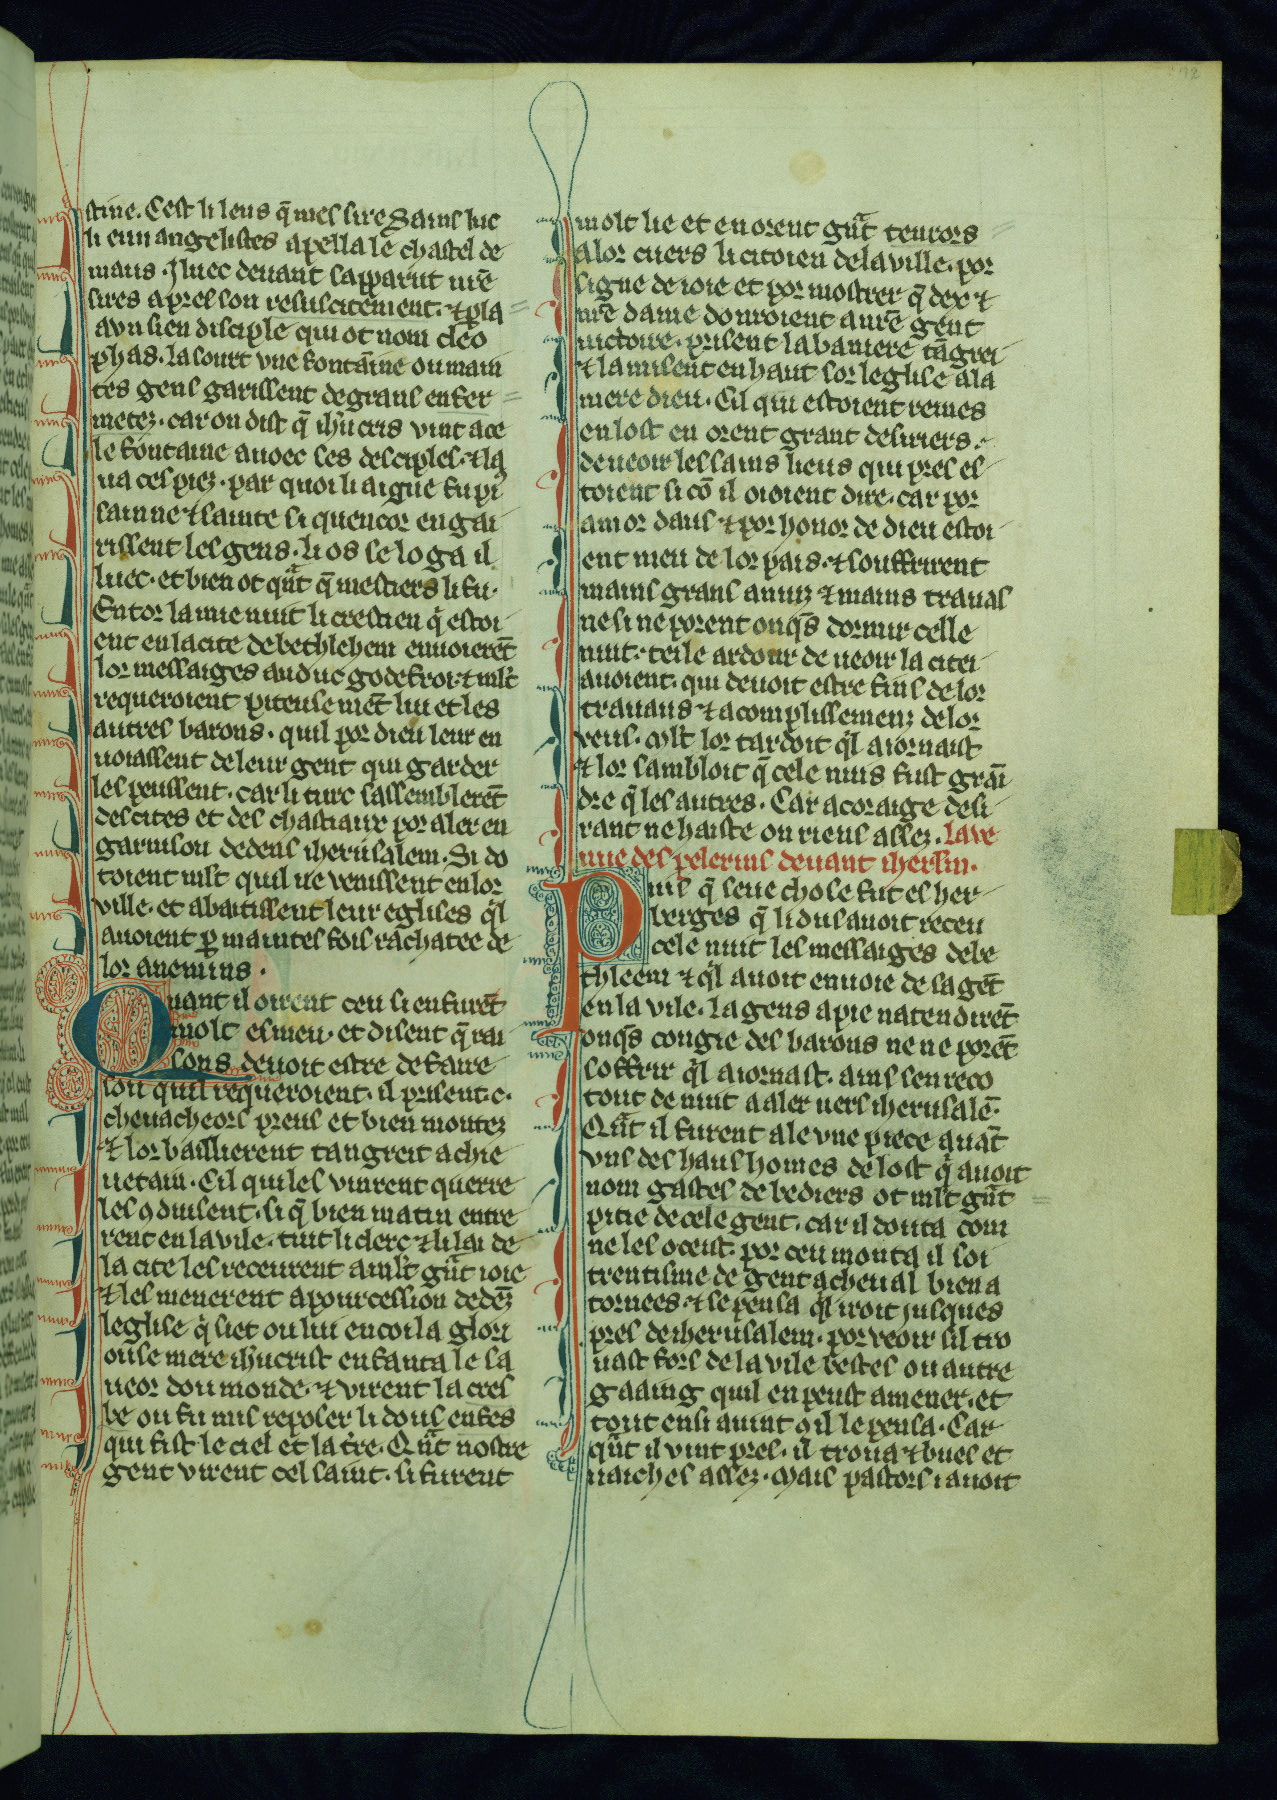 stine. Cest li leus q̄ mes sire Sains luc
li euuangelistes apella le chastel de
maus. Iluec deuant sapparut nr̄e
sires apres son resuscitement. ⁊ pla
a vn sien disciple qui ot nom cleo
phas. la sourt vne fontāine ou main
tes gens garissent de grans enfer
metez. car on dist q̄ ih'ucris vint a ce
le fontaine auoec ses desciples. ⁊ la
ua ces piez. par quoi li aigue fu pi
sainne ⁊ sainte si quencor en gai
rissent les gens. li os se loga il
luec. et bien ot q̄nt q̄ mestiers li fu.
Entor la mie nuit li crestien q̄ estoi
ent en la cite de bethlehem enuoierēt
lor messaiges au duc godefroi. ⁊ ml't
requeroient piteuse mēt lui et les
autres barons. quil por dieu leur en
uoiassent de leur gent qui garder
les peussent. car li turc sassemblerēt
des cites et des chastiaux por aler en
garnison dedens iherusalem. Si do
toient ml't quil ne venissent en lor
ville. et abatissent leur eglises q̄l
auoient p̄ maintes fois rachatee de
lor anemins.
Quant il oirent ceu si en furēt
molt esmeu. et disent q̄ rai
sons deuoit estre de faire
sou quil requeroient. il prisent .c.
cheuacheors preus et bien montez
⁊ lor baillierent tangreit a chie
uetain. Cil qui les vinrent querre
les 9duisent. si q̄ bien matin entre
rent en la vile. tuit li clerc ⁊ li lai de
la cite les receurent a ml't gr̄nt ioie
⁊ les menerent a pourcession dedēz
leglise q̄ siet ou lui encor la glori
ouse mere ih'ucrist enfanta le sa
ueor dou monde. ⁊ virent la cres
be ou fu mis reposer li dous enfes
qui fist le ciel et la tr̄e. Q̄nt nostre
gent virent cel saint. si furent
molt lie et en orent gr̄nt tenrors
a lor cuers li citoien de la ville. por
signe de ioie et por mostrer q̄ dex ⁊
nr̄e dame donroient a nr̄e gent
uictoire. prisent la baniere tāgrei
⁊ la misent en haut sor leglise a la
mere dieu. Cil qui estoient remes
en lost en orent grant desiriers.
de ueoir les sains lieus qui pres es
toient si cō il oioient dire. car por
amor dauls ⁊ por honor de dieu estoi
ent meu de lor pais. ⁊ souffrirent
mains grans anuiz ⁊ mains trauals
ne si ne porent onq̄s dormir celle
nuit. teile ardour de ueoir la citei
auoient. qui deuoit estre fins de lor
trauaus ⁊ acomplissemenz de lor
veus. Ml't lor tardoit q̄l aiornaist
⁊ lor sambloit q̄ cele nuis fust grāi
dre q̄ les autres. Car a coraige desi
rant ne haiste on riens assez. La ve
nue des pelerins deuant iherl'm.
Puis q̄ seue chose fut es her
berges q̄ li dus auoit receu
cele nuit les messaiges de be
thleem ⁊ q̄l auoit enuoie de sa gēt
en la vile. la gens a pie natendirēt
onq̄s congie des barons ne ne porēt
soffrir q̄l aiornast. ains sen reco
tout de nuit a aler uers iherusalē.
Q̄nt il furent ale vne piece auāt
vns des haus homes de lost q̄ auoit
nom gastes de bediers ot ml't gr̄nt
pitie de cele gent. car il douta com
ne les oceist. por ceu monta il soi
trentisme de gent a cheual bien a
tornees. ⁊ se pensa q̄l iroit jusques
pres de iherusalem. por veoir sil tro
uast fors de la vile bestes ou autre
gaaing quil en peust amener. et
tout ensi auint 9 il le pensa. Car
q̄nt il vint pres. il troua ⁊ bues et
uaiches assez. Mais pastors i auoit